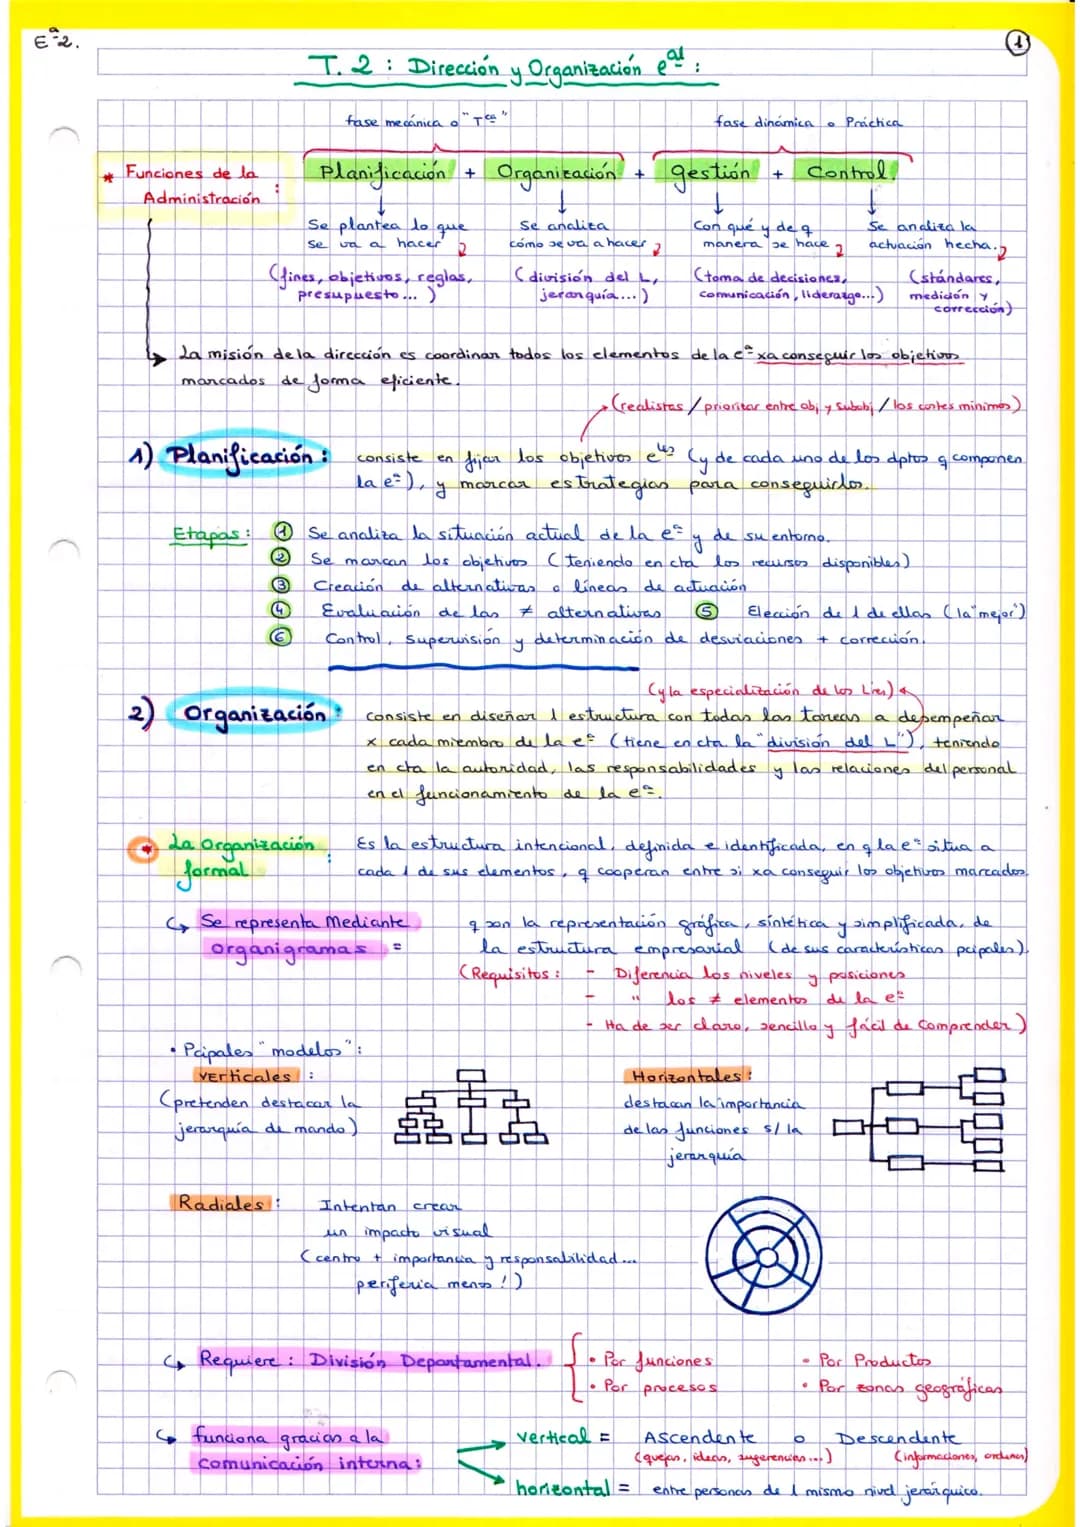 Eª2.
1
T. 2 : Dirección y Organización eªl :
fase mecánica o "Tca"
fase dinámica o Práctica
* Funciones de la Administración :
Planificación + Organización + gestión + Control.
Se plantea lo que se va a hacer
(fines, objetivos, reglas, presupuesto... )
Se analiza cómo se va a hacer
(división del L, jerarquía...)
Con qué y de q manera se hace
(toma de decisiones, comunicación, liderazgo...)
Se analiza la actuación hecha.
(stándares, medición y corrección)
La misión de la dirección es coordinar todos los elementos de la eª xa conseguir los objetivos
marcados de forma eficiente.
(realistas / priorizar entre obj y subobj / los costes mínimos)
1) Planificación :
consiste en fijar los objetivos eles (y de cada uno de los dptos q componen
la eª), y marcar estrategias para conseguirlos.
Etapas :
1 Se analiza la situación actual de la eª y de su entorno.
2 Se marcan los objetivos (teniendo en cta los recursos disponibles)
3 Creación de alternativas o líneas de actuación
4 Evaluación de las ≠ alternativas 5 Elección de 1 de ellas (la "mejor")
6 Control, supervisión y determinación de desviaciones + corrección.
(y la especialización de los Lres)
2) Organización :
consiste en diseñar 1 estructura con todas las tareas a desempeñar
x cada miembro de la eª (tiene en cta la "división del L"), teniendo
en cta la autoridad, las responsabilidades y las relaciones del personal
en el funcionamiento de la eª.
* La Organización formal :
Es la estructura intencional, definida e identificada, en q la eª situa a
cada 1 de sus elementos, q cooperan entre si xa conseguir los objetivos marcados.
Se representa Mediante
organigramas =
q son la representación gráfica, sintética y simplificada, de
la estructura empresarial (de sus características pcipales).
(Requisitos : - Diferencia los niveles y posiciones
- " los ≠ elementos de la eª
- Ha de ser claro, sencillo y fácil de comprender)
• Pcipales "modelos" :
Verticales :
(pretenden destacar la
jerarquía de mando)
Horizontales :
destacan la importancia
de las funciones s/ la
jerarquía
Radiales :
Intentan crear
un impacto visual
(centro + importancia y responsabilidad...
periferia menos !)
Requiere : División Departamental.
• Por funciones
• Por procesos
• Por Productos
• Por zonas geográficas
funciona gracias a la
comunicación interna :
vertical = Ascendente o Descendente
(quejas, ideas, sugerencias...) (informaciones, ordenes)
horizontal = entre personas de 1 mismo nivel jerárquico.